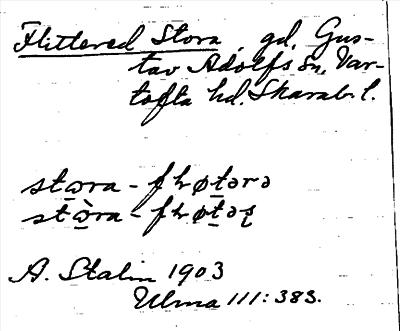 Flittered Stora, gd, Gus-
tav Adolfs sn, Var-
tofta hd. Skarab. l.
stωra - fhøtərə
stὼra - fhøtəʀ
A. Stalin 1903
Ulma 111:383.